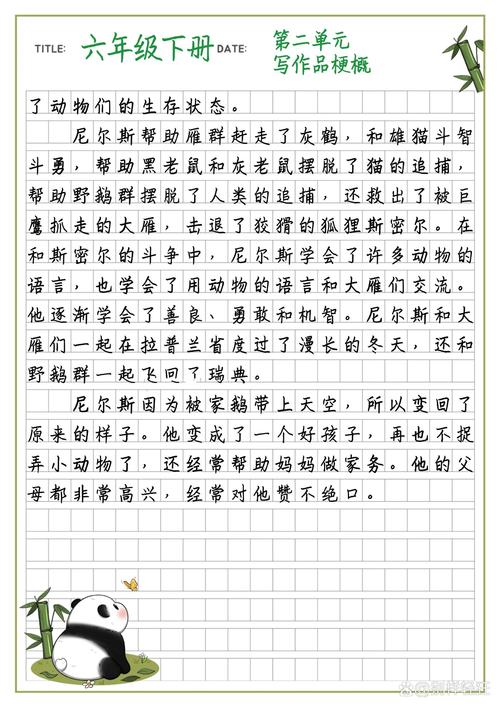 TITLE: 六年级下册 DATE: 第二单元
写作品梗概
了动物们的生存状态。
尼尔斯帮助雁群赶走了灰鹤，和雄猫斗智
斗勇，帮助黑老鼠和灰老鼠摆脱了猫的追捕，
帮助野鹅群摆脱了人类的追捕，还救出了被巨
鹰抓走的大雁，击退了狡猾的狐狸斯密尔。在
和斯密尔的斗争中，尼尔斯学会了许多动物的
语言，也学会了用动物的语言和大雁们交流。
他逐渐学会了善良、勇敢和机智。尼尔斯和大
雁们一起在拉普兰省度过了漫长的冬天，还和
野鹅群一起飞回了瑞典。
尼尔斯因为被家鹅带上天空，所以变回了
原来的样子。他变成了一个好孩子，再也不捉
弄小动物了，还经常帮助妈妈做家务。他的父
母都非常高兴，经常对他赞不绝口。